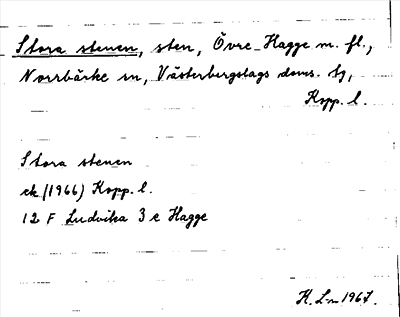 Stora stenen, sten, Övre-Hagge m. fl.,
Norrbärke sn, Västerbergslags doms. tg,
Kopp. l.
Stora stenen
ek (1966) Kopp. l.
12 F Ludvika 3 e Hagge
H. Lm 1967.